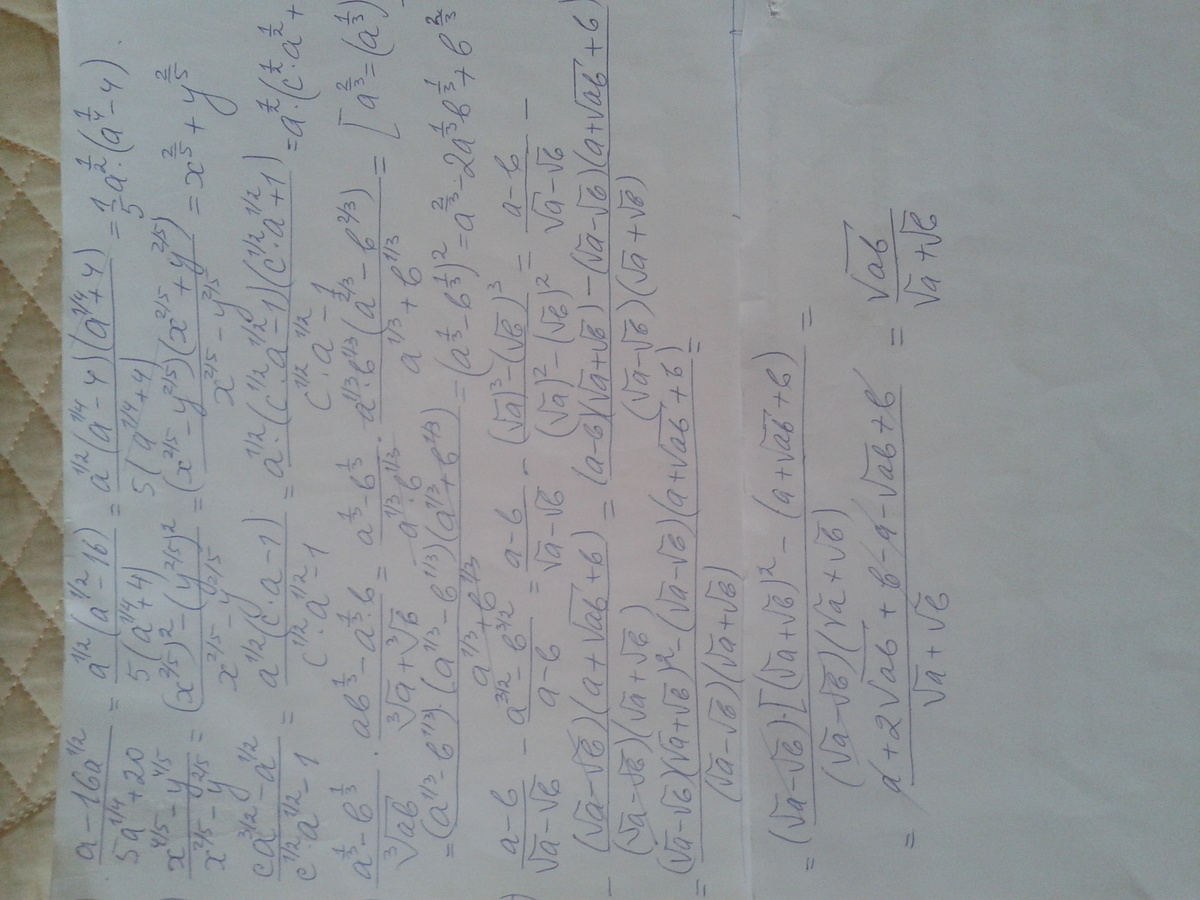 (a - 16a^(1/2))/(5a^(1/4) + 20) = (a^(1/2)(a^(1/2) - 16))/(5(a^(1/4) + 4)) = (a^(1/2)(a^(1/4) - 4)(a^(1/4) + 4))/(5(a^(1/4) + 4)) = 1/5 a^(1/2)·(a^(1/4) - 4).
(x^(4/5) - y^(4/5))/(x^(2/5) - y^(2/5)) = ((x^(2/5))^2 - (y^(2/5))^2)/(x^(2/5) - y^(2/5)) = ((x^(2/5) - y^(2/5))(x^(2/5) + y^(2/5)))/(x^(2/5) - y^(2/5)) = x^(2/5) + y^(2/5)
(ca^(3/2) - a^(1/2))/(c^(1/2)·a^(1/2) - 1) = (a^(1/2)(c·a - 1))/(c^(1/2)·a^(1/2) - 1) = (a^(1/2)·(c^(1/2)·a^(1/2) - 1)(c^(1/2)·a^(1/2) + 1))/(c^(1/2)·a^(1/2) - 1) = a^(1/2)·(c^(1/2)·a^(1/2) +
(a^(1/3) - b^(1/3))/∛(ab) · (ab^(1/3) - a^(1/3)·b)/(∛a + ∛b) = (a^(1/3) - b^(1/3))/(a^(1/3)·b^(1/3)) · (a^(1/3)·b^(1/3)(a^(2/3) - b^(2/3)))/(a^(1/3) + b^(1/3)) = [a^(2/3) = (a^(1/3))
= ((a^(1/3) - b^(1/3))·(a^(1/3) - b^(1/3))(a^(1/3) + b^(1/3)))/(a^(1/3) + b^(1/3)) = (a^(1/3) - b^(1/3))^2 = a^(2/3) - 2a^(1/3)b^(1/3) + b^(2/3)
) (a - b)/(√a - √b) - (a^(3/2) - b^(3/2))/(a - b) = (a - b)/(√a - √b) - ((√a)^3 - (√b)^3)/((√a)^2 - (√b)^2) = (a - b)/(√a - √b) -
- ((√a - √b)(a + √ab + b))/((√a - √b)(√a + √b)) = ((a - b)(√a + √b) - (√a - √b)(a + √ab + b))/((√a - √b)(√a + √b))
= ((√a - √b)(√a + √b)^2 - (√a - √b)(a + √ab + b))/((√a - √b)(√a + √b)) =
= ((√a - √b)·[(√a + √b)^2 - (a + √ab + b))/((√a - √b)(√a + √b)) =
= (a + 2√ab + b - a - √ab + b)/(√a + √b) = √ab/(√a + √b)